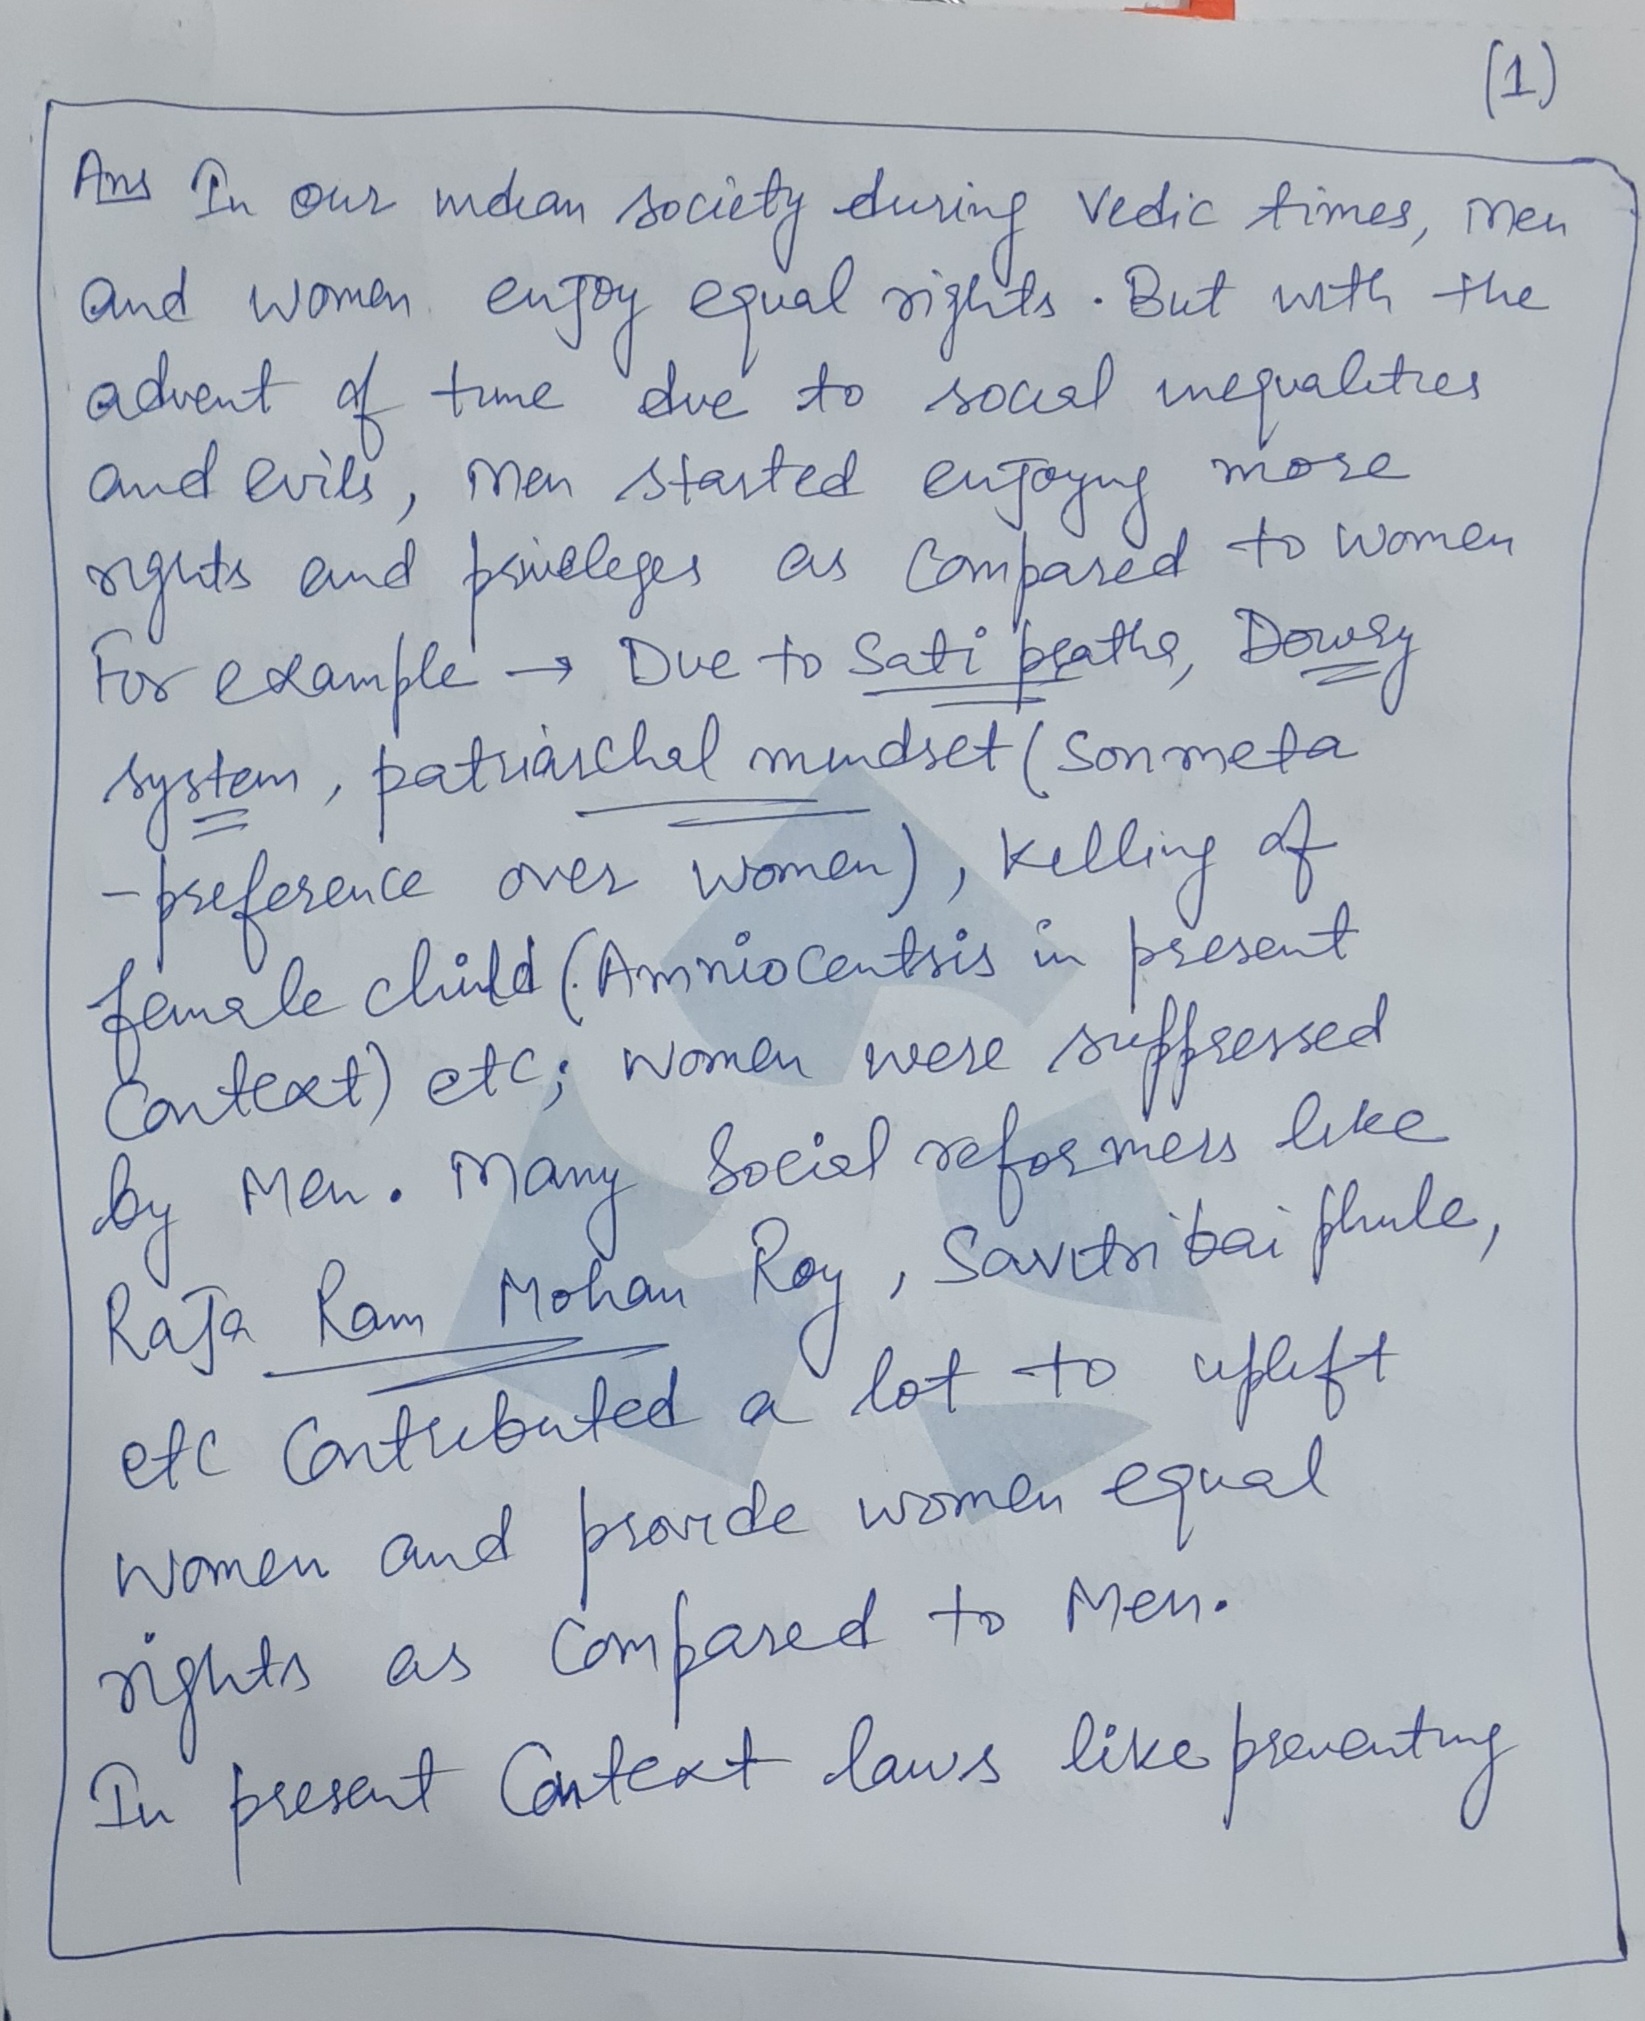 (1)
Ans In our indian society during vedic times, men
and women enjoy equal rights. But with the
advent of time due to social inequalities
and evils, men started enjoying more
rights and privileges as compared to women
For example → Due to Sati pratha, Dowry
system, patriarchal mindset (Sonmeta
-preference over women), killing of
female child (Amniocentsis in present
context) etc; women were suppressed
by Men. Many Social reformers like
RaJa Ram Mohan Roy, Savitri bai phule,
etc contributed a lot to uplift
women and provide women equal
rights as compared to Men.
In present context laws like preventing